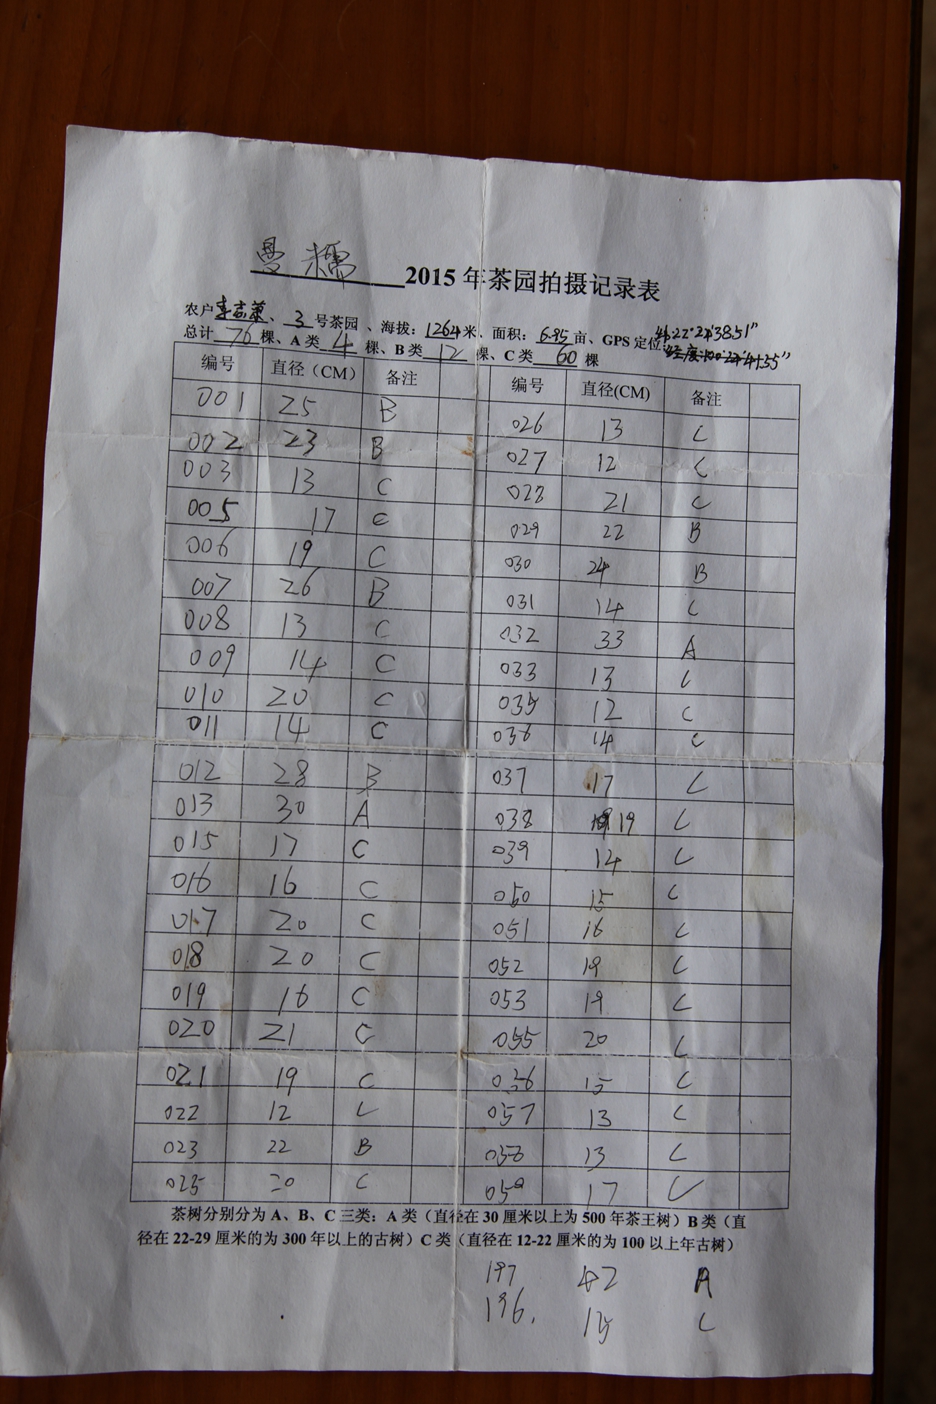 曼糯 2015年茶园拍摄记录表
农户李志荣、 3 号茶园 、海拔：1264米、面积： 6.95 亩、GPS 定位
总计 76 棵、A 类 4 棵、B类 12 棵、C 类 60 棵
编号 直径（CM） 备注 编号 直径(CM) 备注
001 25 B 026 13 C
002 23 B 027 12 C
003 13 C 028 21 C
005 17 C 029 22 B
006 19 C 030 24 B
007 26 B 031 14 C
008 13 C 032 33 A
009 14 C 033 13 C
010 20 C 035 12 C
011 14 C 036 14 C
012 28 B 037 17 C
013 30 A 038 19 C
015 17 C 039 14 C
016 16 C 050 15 C
017 20 C 051 16 C
018 20 C 052 19 C
019 16 C 053 19 C
020 21 C 055 20 C
021 19 C 056 15 C
022 12 C 057 13 C
023 22 B 058 13 C
025 20 C 059 17 C
茶树分别分为 A、B、C 三类：A 类（直径在 30 厘米以上为 500 年茶王树）B 类（直
径在 22-29 厘米的为 300 年以上的古树）C 类（直径在 12-22 厘米的为 100 以上年古树）
197 42 A
196. C